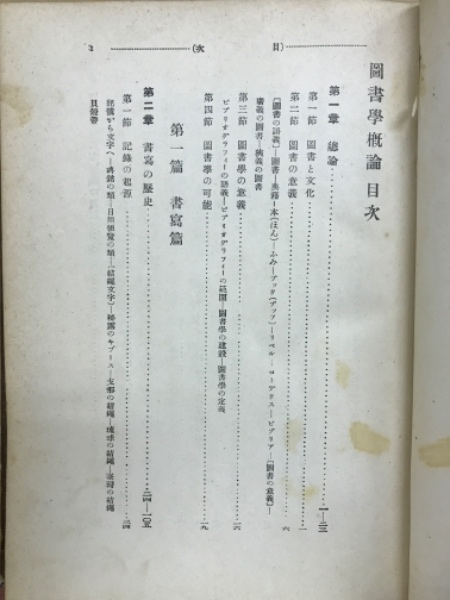 目次
圖書學概論 目次
第一章 總論……一—二三
第一節 圖書と文化……一
第二節 圖書の意義……六
〔圖書の語義〕—圖書—典籍—本(ほん)—ふみ—ブック(ブッフ)—リベル—コーデクス—ビブリア—〔圖書の意義〕—
廣義の圖書—狹義の圖書
第三節 圖書學の意義……一六
ビブリオグラフィーの語義—ビブリオグラフィーの範圍—圖書學の建設—圖書學の定義
第四節 圖書學の可能……一九
第一篇 書寫篇
第二章 書寫の歷史……二四—一〇五
第一節 記錄の起源……二四
記憶から文字へ—の類—の類—(結繩文字)—秘露のキプース—支那の結繩—琉球の結繩—臺灣の結繩
貝殼書